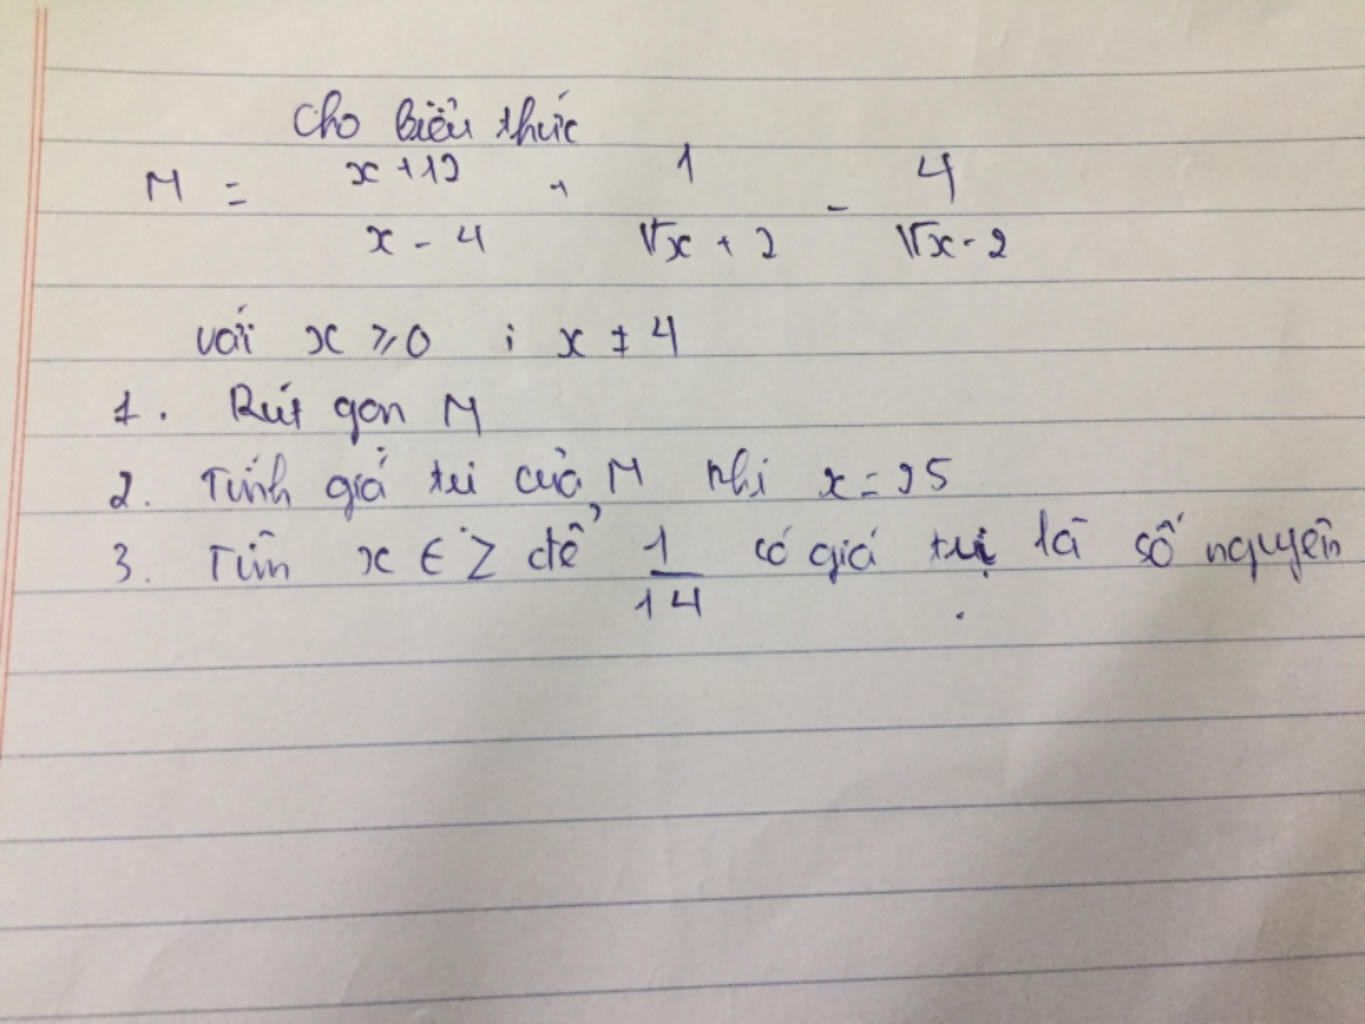 Cho biểu thức
M = \frac{x+12}{x-4} + \frac{1}{\sqrt{x}+2} - \frac{4}{\sqrt{x}-2}
với x ≥ 0 ; x ≠ 4
1. Rút gọn M
2. Tính giá trị của M khi x = 25
3. Tìm x ∈ Z để \frac{1}{14} có giá trị là số nguyên.